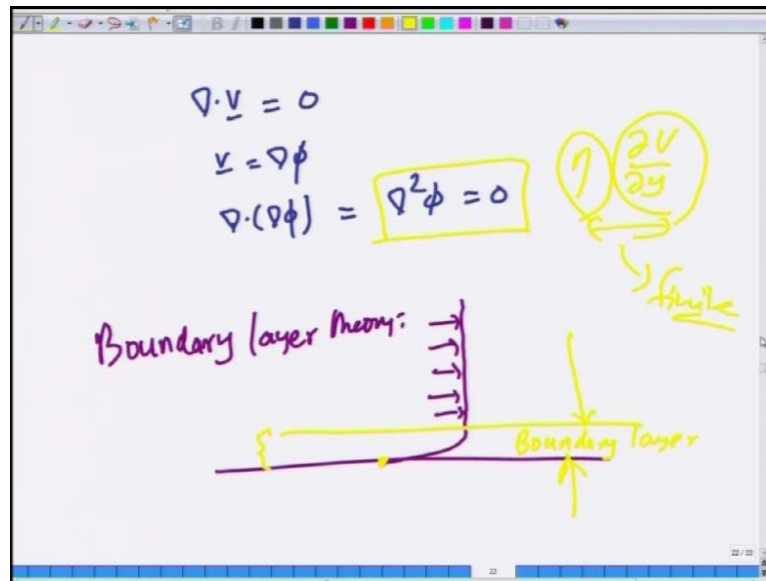 B I
∇·v = 0
v = ∇φ
∇·(∇φ) = ∇²φ = 0
η ∂v/∂y
finite
Boundary layer Theory:
Boundary layer
22 / 33
22